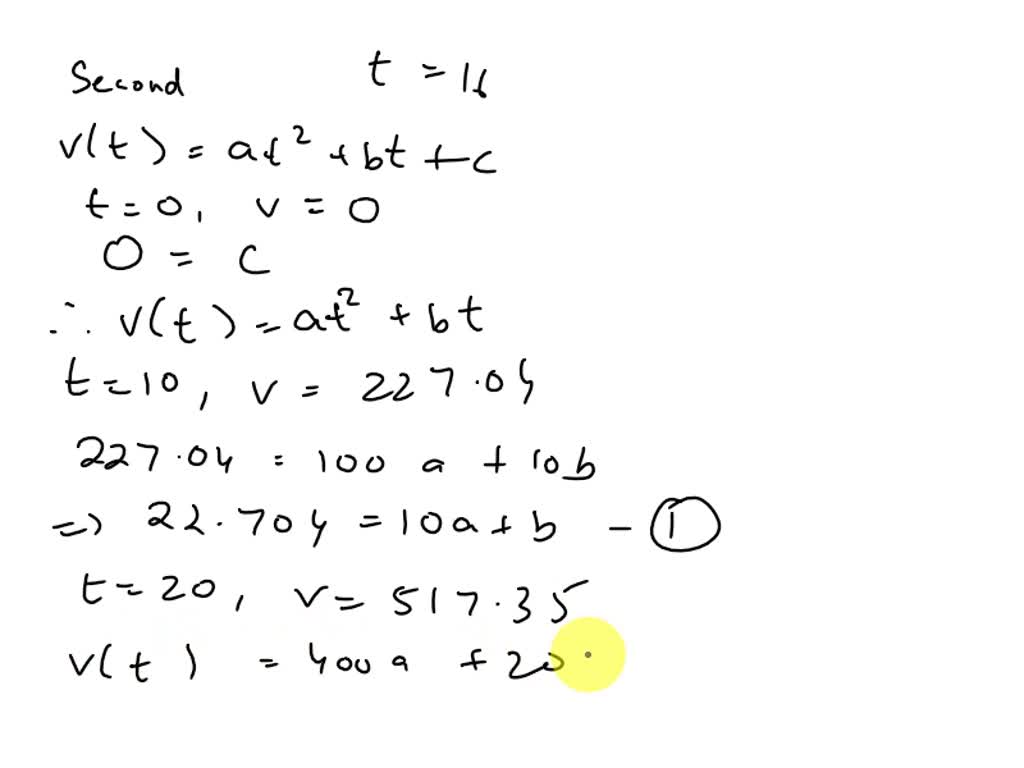 Second t = 16
v(t) = at² + bt + c
t = 0, v = 0
0 = c
∴ v(t) = at² + bt
t = 10, v = 227.04
227.04 = 100 a + 10b
=> 22.704 = 10a + b - ①
t = 20, v = 517.35
v(t) = 400 a + 20